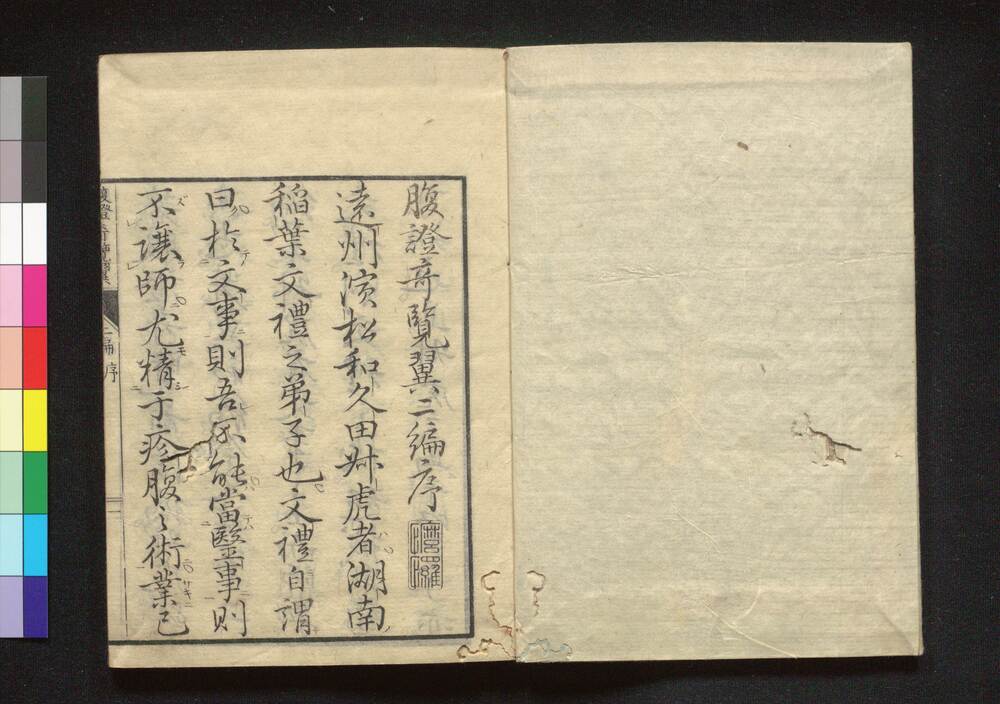 腹證奇覽翼二編序
遠州濱松和久田叔虎者湖南
稲葉文禮之弟子也文禮自謂
曰於文事則吾不能當醫事則
不讓師尤精于疹腹之術業已
二編 序